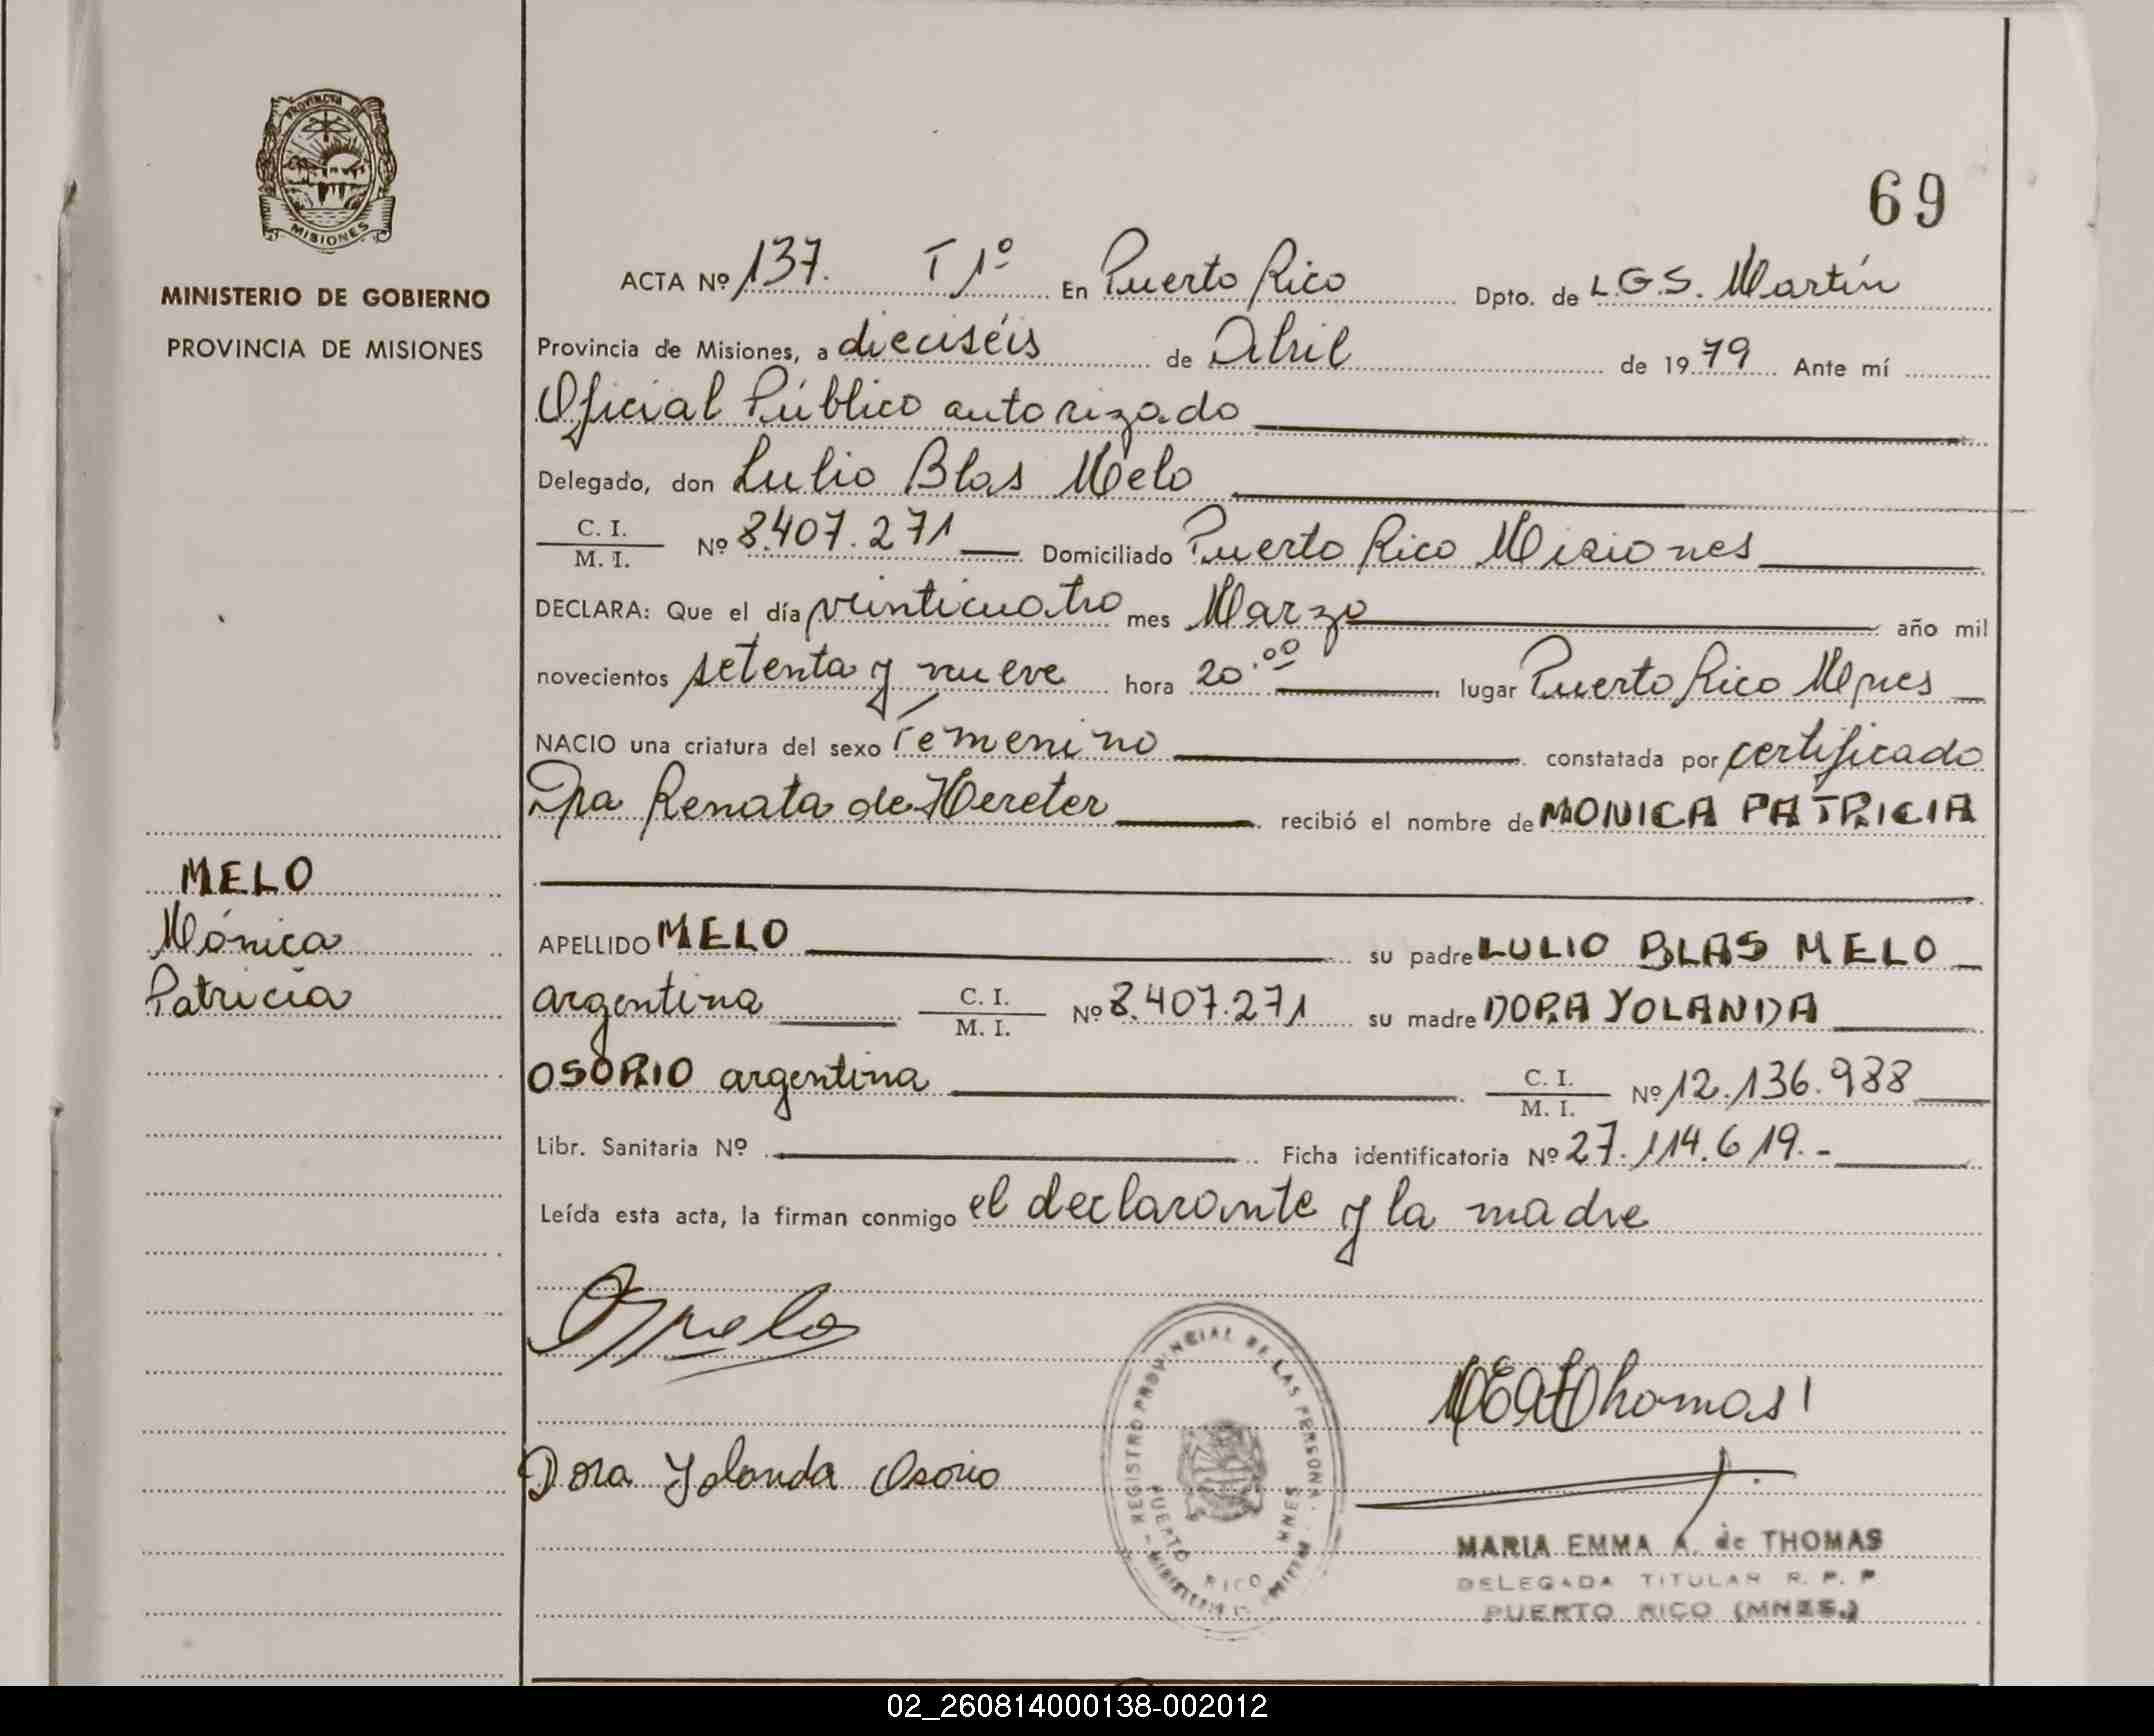 PROVINCIA DE
MISIONES
MINISTERIO DE GOBIERNO
PROVINCIA DE MISIONES
MELO
Mónica
Patricia
69
ACTA Nº 137. T 1º En Puerto Rico Dpto. de L.G.S. Martín
Provincia de Misiones, a dieciséis de Abril de 1979 Ante mí
Oficial Público autorizado
Delegado, don Lulio Blas Melo
C. I. / M. I. Nº 8.407.271 Domiciliado Puerto Rico Misiones
DECLARA: Que el día veinticuatro mes Marzo año mil
novecientos setenta y nueve hora 20.00 lugar Puerto Rico Mnes
NACIO una criatura del sexo Femenino constatada por certificado
Renata de recibió el nombre de MONICA PATRICIA
APELLIDO MELO su padre LULIO BLAS MELO
argentina C. I. / M. I. Nº 8.407.271 su madre DORA YOLANDA
OSORIO argentina C. I. / M. I. Nº 12.136.988
Libr. Sanitaria Nº Ficha identificatoria Nº 27.114.619.-
Leída esta acta, la firman conmigo el declarante y la madre
Dora Yolanda Osorio
REGISTRO PROVINCIAL DE LAS PERSONAS
PUERTO RICO MNES
MARIA EMMA A. de THOMAS
DELEGADA TITULAR R. P. P
PUERTO RICO (MNES.)
02_260814000138-002012